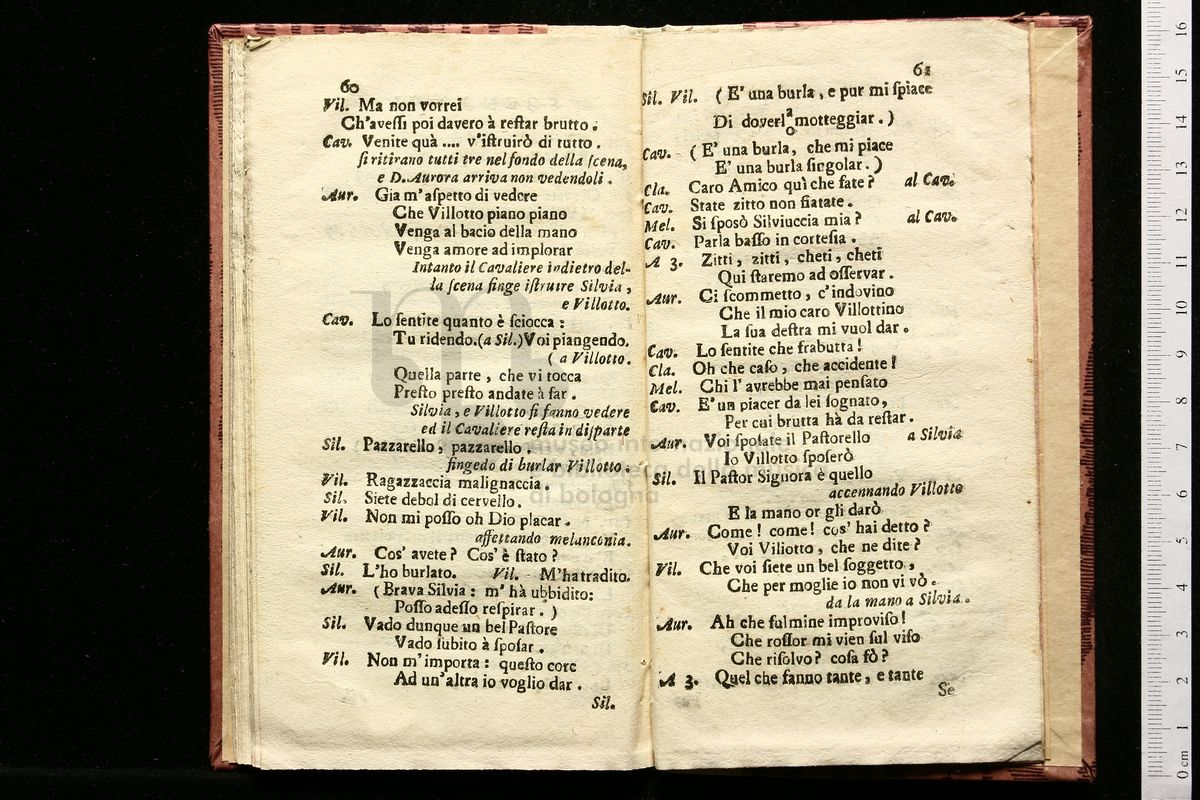 60
Vil. Ma non vorrei
Ch'aveſſi poi davero à reſtar brutto.
Cav. Venite quà .... v'iſtruirò di tutto.
ſi ritirano tutti tre nel fondo della ſcena,
e D. Aurora arriva non vedendoli.
Aur. Gia m'aſpetto di vedere
Che Villotto piano piano
Venga al bacio della mano
Venga amore ad implorar
Intanto il Cavaliere indietro del-
la ſcena finge iſtruire Silvia,
e Villotto.
Cav. Lo ſentite quanto è ſciocca:
Tu ridendo.(a Sil.)Voi piangendo.
( a Villotto.
Quella parte, che vi tocca
Preſto preſto andate à far.
Silvia, e Villotto ſi fanno vedere
ed il Cavaliere reſta in diſparte
Sil. Pazzarello, pazzarello.
fingedo di burlar Villotto.
Vil. Ragazzaccia malignaccia.
Sil. Siete debol di cervello.
Vil. Non mi poſſo oh Dio placar.
affettando melanconia.
Aur. Cos' avete? Cos' è ſtato?
Sil. L'ho burlato. Vil. M'ha tradito.
Aur. (Brava Silvia: m' hà ubbidito:
Poſſo adeſſo reſpirar.)
Sil. Vado dunque un bel Paſtore
Vado ſubito à ſpoſar.
Vil. Non m'importa: queſto core
Ad un'altra io voglio dar.
Sil.
61
Sil. Vil. (E' una burla, e pur mi ſpiace
Di doverl a/o motteggiar.)
Cav. (E' una burla, che mi piace
E' una burla ſingolar.)
Cla. Caro Amico quì che fate? al Cav.
Cav. State zitto non fiatate.
Mel. Si ſposò Silviuccia mia? al Cav.
Cav. Parla baſſo in corteſia.
A 3. Zitti, zitti, cheti, cheti
Qui ſtaremo ad oſſervar.
Aur. Ci ſcommetto, c'indovino
Che il mio caro Villottino
La ſua deſtra mi vuol dar.
Cav. Lo ſentite che frabutta!
Cla. Oh che caſo, che accidente!
Mel. Chi l' avrebbe mai penſato
Cav. E' un piacer da lei ſognato,
Per cui brutta hà da reſtar.
Aur. Voi ſpoſate il Paſtorello a Silvia
Io Villotto ſpoſerò
Sil. Il Paſtor Signora è quello
accennando Villotto
E la mano or gli darò
Aur. Come! come! cos' hai detto?
Voi Villotto, che ne dite?
Vil. Che voi ſiete un bel ſoggetto,
Che per moglie io non vi vò.
da la mano a Silvia.
Aur. Ah che fulmine improviſo!
Che roſſor mi vien ſul viſo
Che riſolvo? coſa fò?
A 3. Quel che fanno tante, e tante
Se